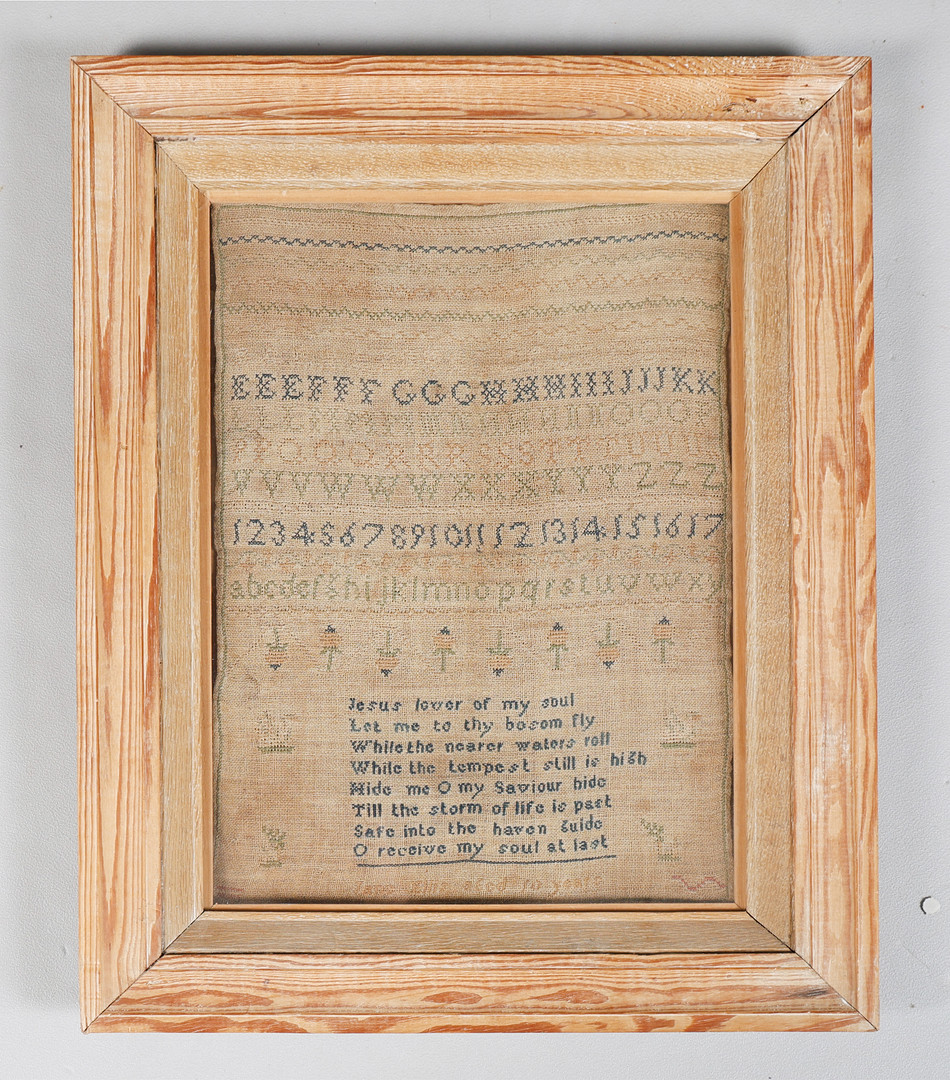 E E E F F F G G G H H H I I I J J J K K
O O O P
P P Q Q Q R R R S S S T T T U U U
V V V W W W X X X Y Y Y Z Z Z
1 2 3 4 5 6 7 8 9 10 11 12 13 14 15 16 17
a b c d e f g h i j k l m n o p q r s t u v w x y
Jesus lover of my soul
Let me to thy bosom fly
While the nearer waters roll
While the tempest still is high
Hide me O my Saviour hide
Till the storm of life is past
Safe into the haven guide
O receive my soul at last
aged years